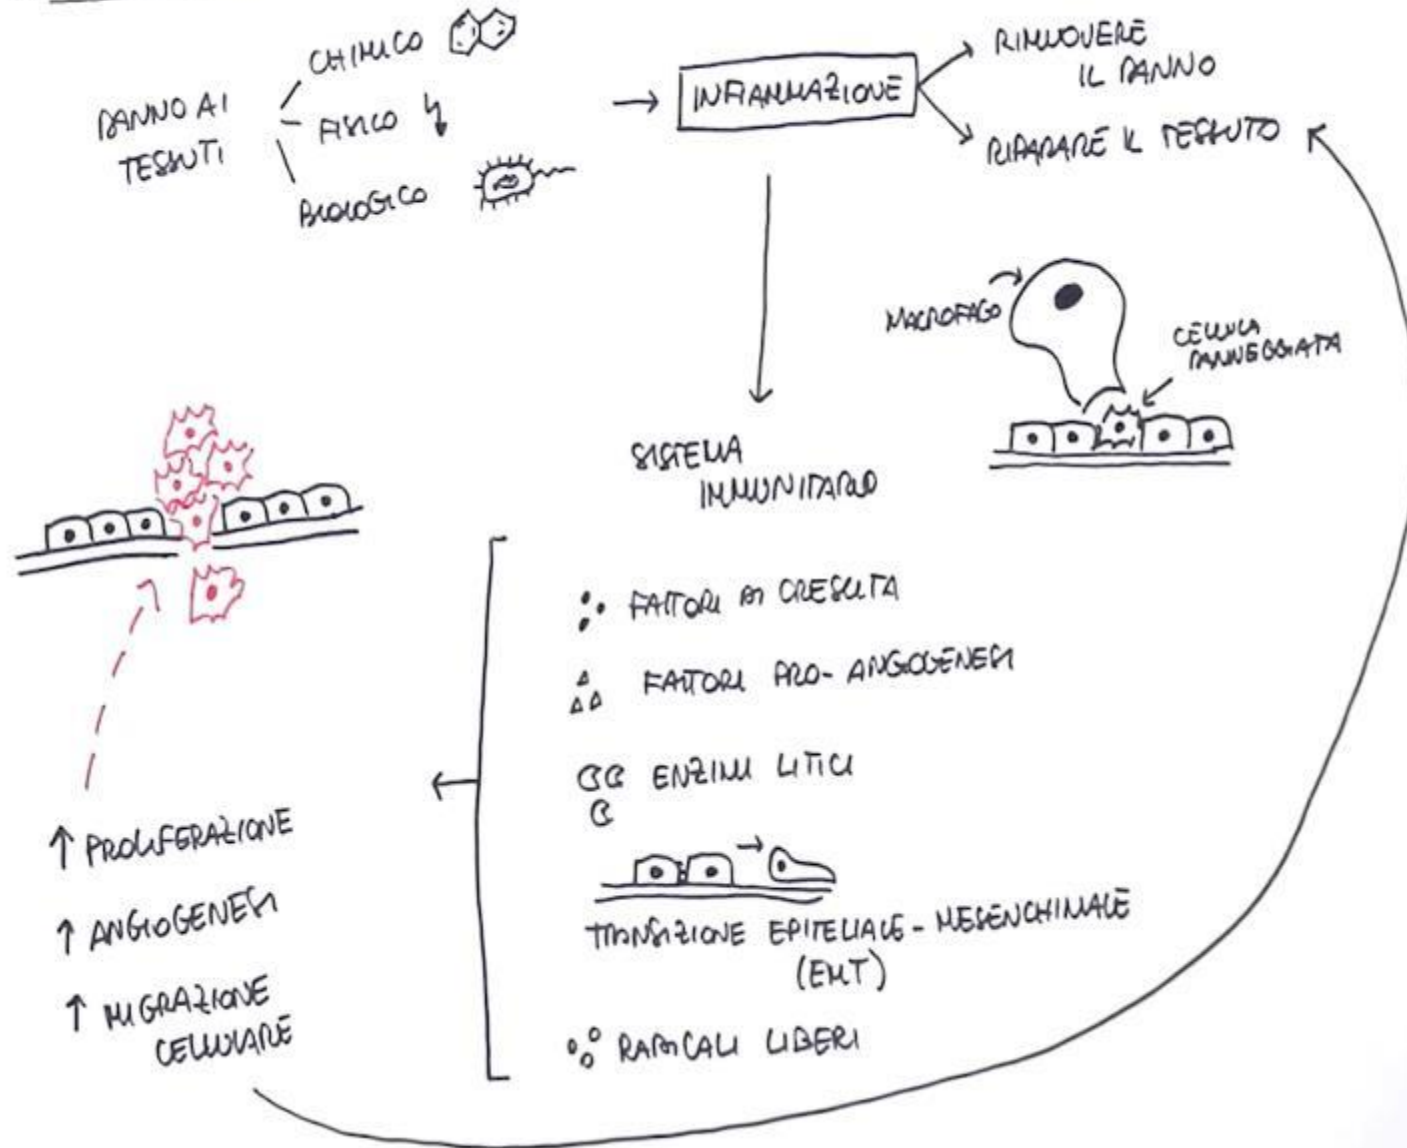 DANNO AI
TESSUTI
CHIMICO
FISICO
BIOLOGICO
INFIAMMAZIONE
RIMUOVERE
IL DANNO
RIPARARE IL TESSUTO
MACROFAGO
CELLULA
DANNEGGIATA
SISTEMA
IMMUNITARIO
FATTORI DI CRESCITA
FATTORI PRO-ANGIOGENESI
ENZIMI LITICI
TRANSIZIONE EPITELIALE-MESENCHIMALE
(EMT)
RADICALI LIBERI
↑ PROLIFERAZIONE
↑ ANGIOGENESI
↑ MIGRAZIONE
CELLULARE